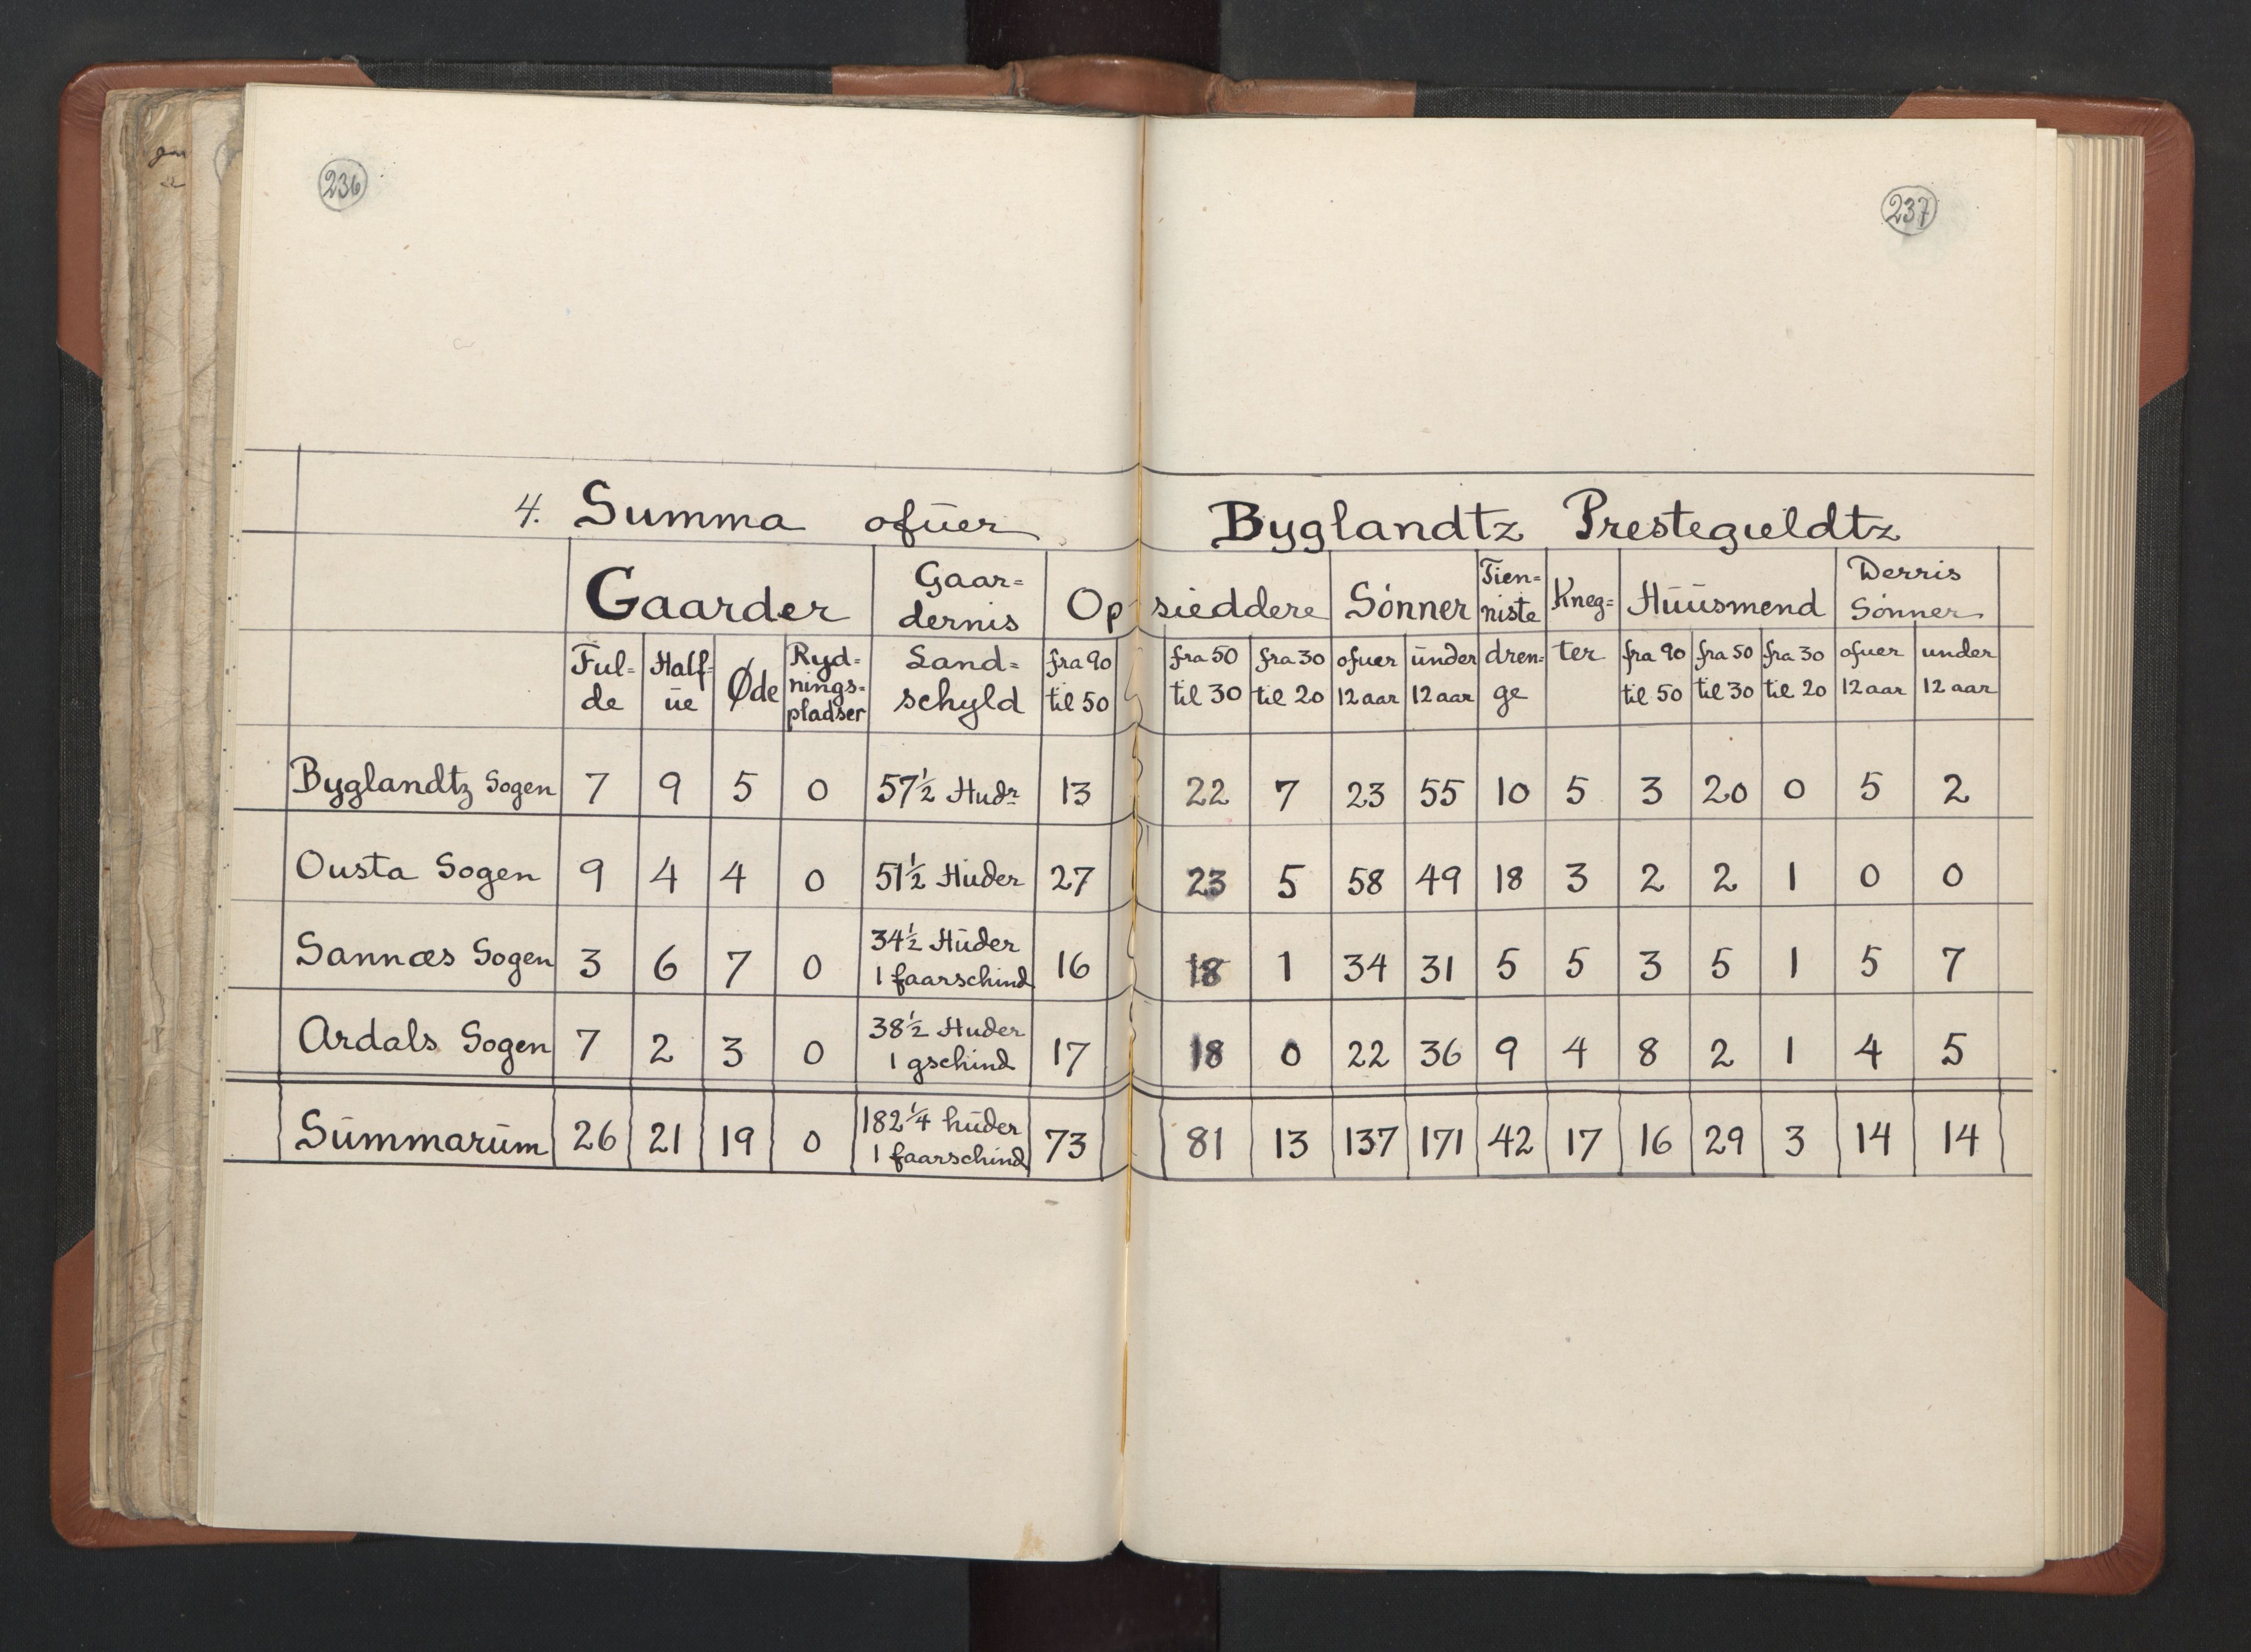 236
237
4. Summa ofüer Byglandtz Prestegieldtz
Gaarder Gaar= dernis Opsieddere Sönner Tien= niste Kneg= Hüüsmend Derris Sönner
Ful= de Half= üe Øde Ryd= nings= pladser Land= schyld fra 90 til 50 fra 50 til 30 fra 30 til 20 ofuer 12 aar ünder 12 aar dren= ge ter fra 90 til 50 fra 50 til 30 fra 30 til 20 ofuer 12 aar under 12 aar
Byglandtz Sogen 7 9 5 0 57½ Hudr 13 22 7 23 55 10 5 3 20 0 5 2
Ousta Sogen 9 4 4 0 51½ Hüder 27 23 5 58 49 18 3 2 2 1 0 0
Sannæs Sogen 3 6 7 0 34½ Hüder 1 faarschind 16 18 1 34 31 5 5 3 5 1 5 7
Ardals Sogen 7 2 3 0 38½ Huder 1 gschind 17 18 0 22 36 9 4 8 2 1 4 5
Sümmarüm 26 21 19 0 182¼ hüder 1 faarschind 73 81 13 137 171 42 17 16 29 3 14 14